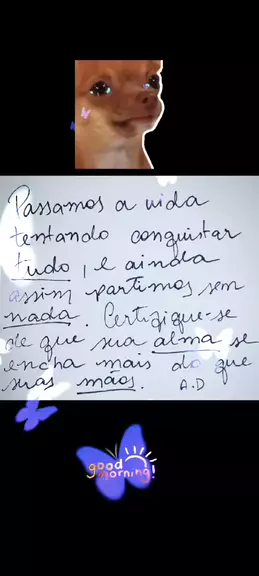 Passamos a vida
tentando conquistar
tudo, e ainda
assim partimos sem
nada. Certifique-se
de que sua alma se
encha mais do que
suas mãos. A.D
good
morning!